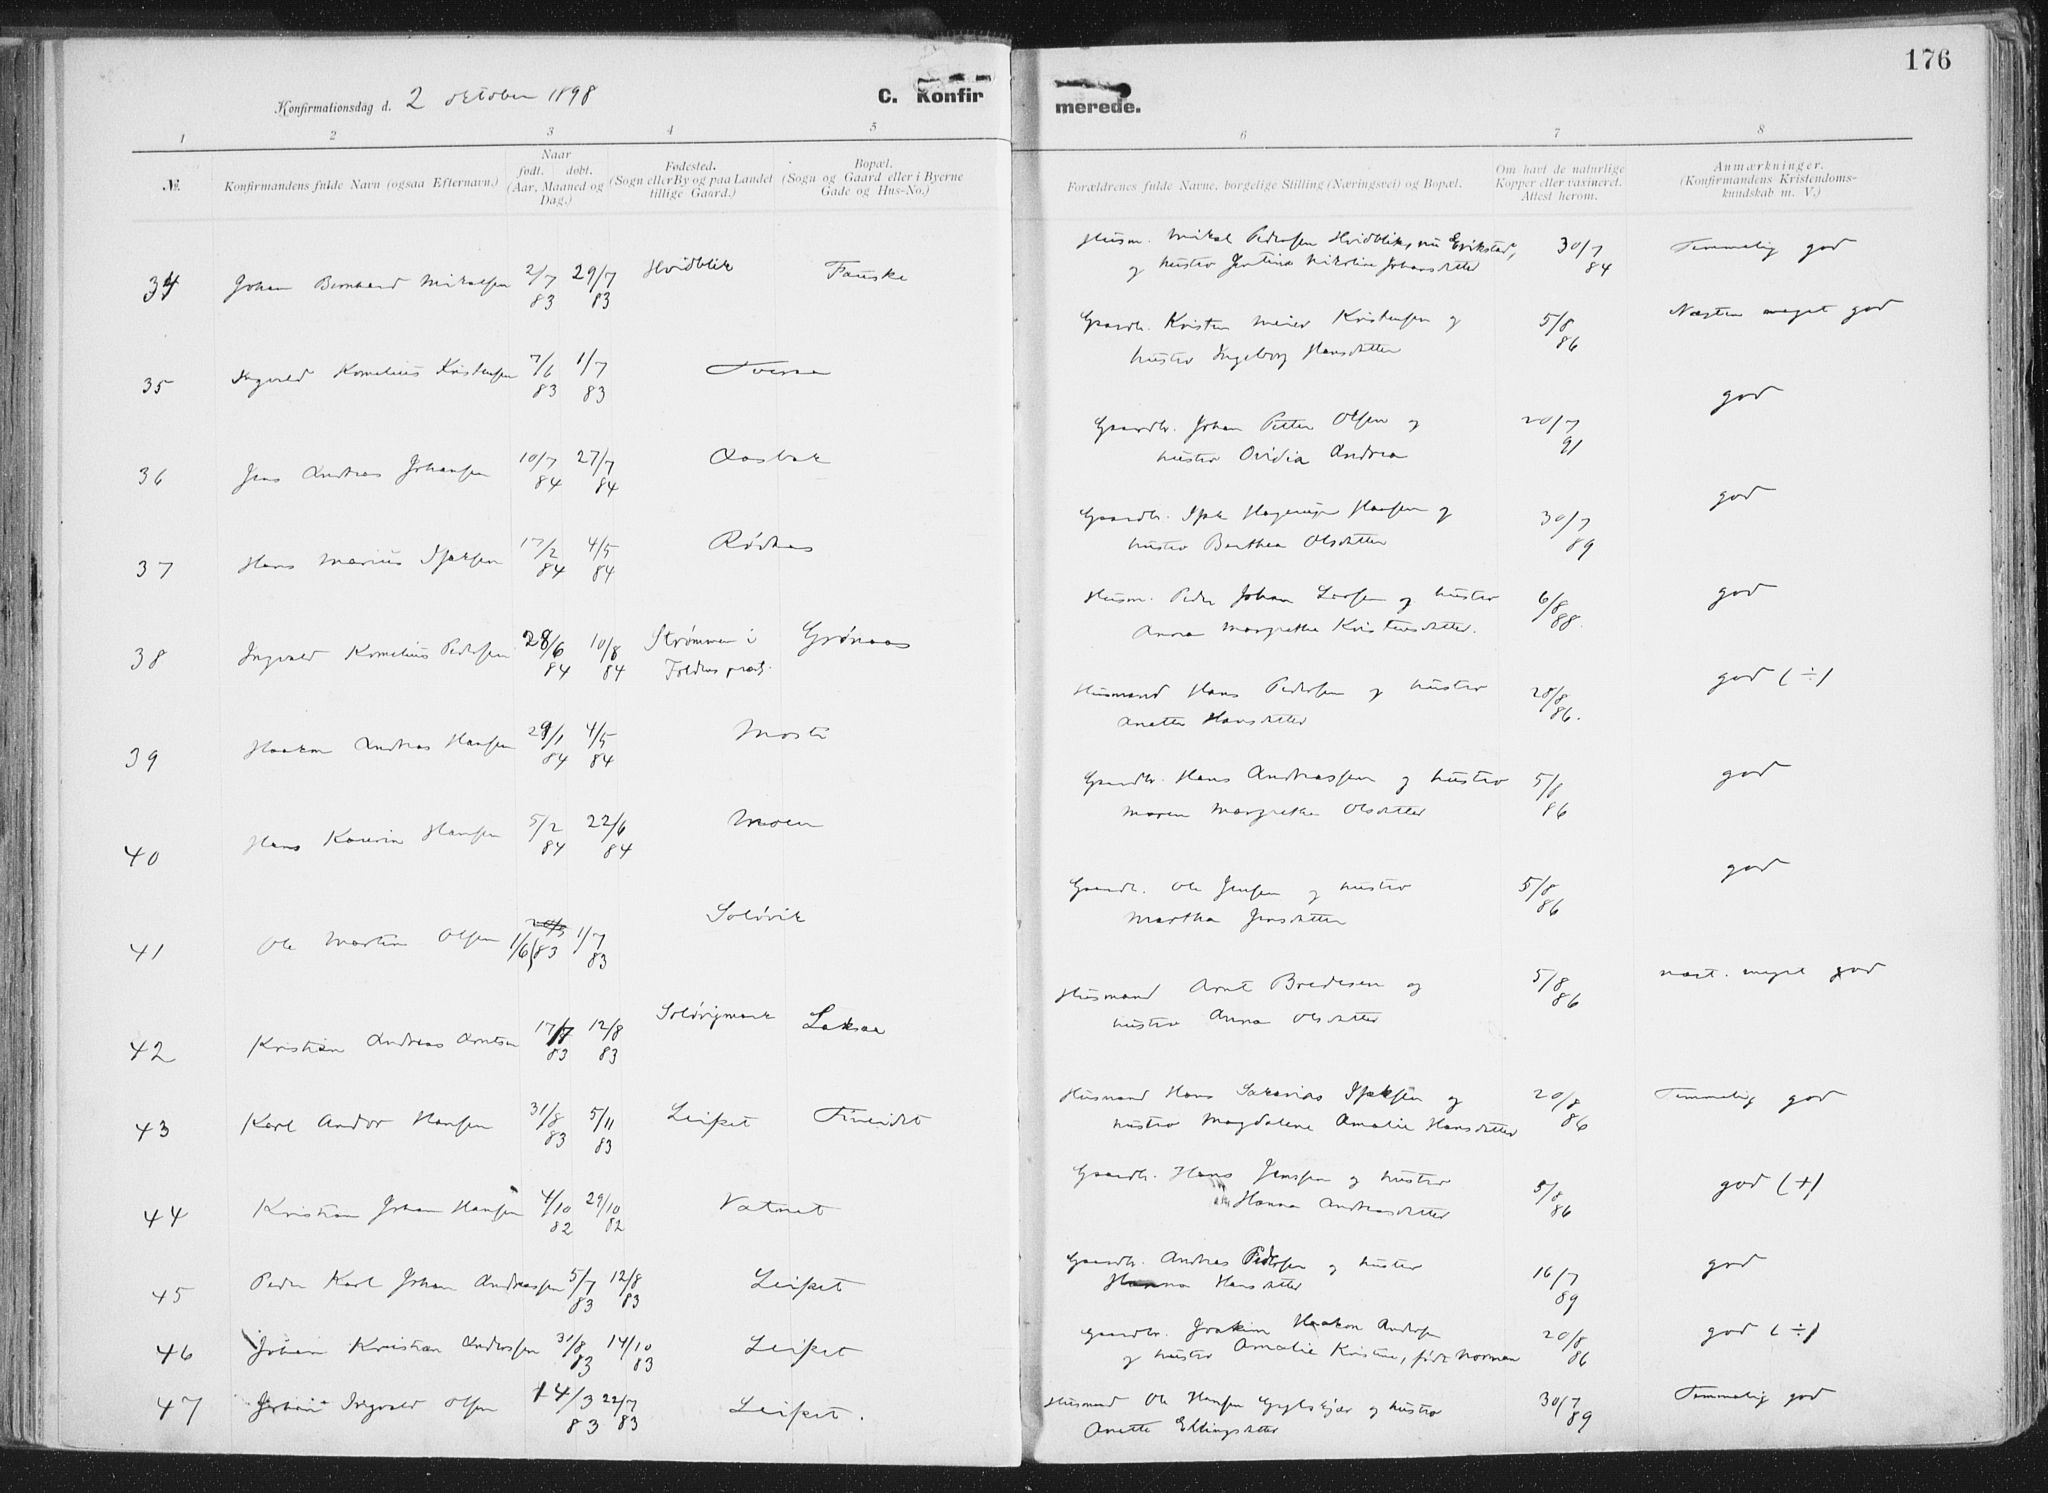 176
Konfirmationsdag d. 2 october 1898
C. Konfirmerede.
1 2 3 4 5 6 7 8
№. Konfirmandens fulde Navn (ogsaa Efternavn.) Naar født. døbt. (Aar, Maaned og Dag.) Fødested. (Sogn eller By og paa Landet tillige Gaard.) Bopæl. (Sogn og Gaard eller i Byerne Gade og Hus-No.) Forældrenes fulde Navne, borgelige Stilling (Næringsvei) og Bopæl. Om havt de naturlige Kopper eller vaxineret. Attest herom. Anmærkninger. (Konfirmandens Kristendoms-kundskab m. V.)
34 Johan Bernhard Mikalsen 2/7 83 29/7 83 Hvidblik Fauske Husm. Mikal Pedersen Hvidblik, nu Erikstad,
og hustru Jentine Nikoline Johansdatter 30/7 84 Temmelig god
35 Ingvald Kornelius Kristensen 7/6 83 1/7 83 Tveraa Gaardbr. Kristen Meier Kristensen og
hustru Ingeborg Hansdatter 5/8 86 Næsten meget god
36 Jens Andreas Johansen 10/7 84 27/7 84 Aasbak Gaardbr. Johan Petter Olsen og
hustru Ovidia Andrea 20/7 91 god
37 Hans Marius Isaksen 17/2 84 4/5 84 Rødaas Gaardbr. Isak Hansen og
hustru Berthea Olsdatter 30/7 89 god
38 Ingvald Kornelius Pedersen 28/6 84 10/8 84 Strømmen i
Foldens præst. Grønaas Husm. Peder Johan Larsen og hustru
Anna Margrethe Kristensdatter. 6/8 88. god
39 Haakon Andreas Hansen 29/1 84 4/5 84 Mosti Husmand Hans Pedersen og hustru
Anette Hansdatter 28/8 86. god (÷)
40 Hans Hansen 5/2 84 22/6 84 Moen Gaardbr. Hans Andreassen og hustru
Maren Margrethe Olsdatter 5/8 86 god
41 Ole Martin Olsen 1/6 83 1/7 83 Soløvik Gaardbr. Ole Jensen og hustru
Martha Jensdatter 5/8 86 god
42 Kristian Andreas Arntsen 17/7 83 12/8 83 Soløvigmark Laksaa Husmand Arnt Bredesen og
hustru Anna Olsdatter 5/8 86 næst. meget god
43 Karl Andor Hansen 31/8 83 5/11 83 Leifset Fineidet Husmand Hans Sakarias Isaksen og
hustru Magdalene Amalie Hansdatter 20/8 86 Temmelig god
44 Kristian Johan Hansen 4/10 82 29/10 82 Vatnet Gaardbr. Hans Jensen og hustru
Hanna Andreasdatter 5/8 86 god (+)
45 Peder Karl Johan Andreassen 5/7 83 12/8 83 Leifset Gaardbr. Andreas Pedersen og hustru
Hanna Hansdatter 16/7 89 god
46 Johan Kristian Andersen 31/8 83 14/10 83 Leifset Gaardbr. Joakim Haakon Andersen
og hustru Amalie Kristine, født Norman 20/8 86 god (÷)
47 Johan Ingvald Olsen 14/3 83 22/7 83 Leifset. Husmand Ole Hansen og hustru
Anette Ellingsdatter 30/7 89 Temmelig god